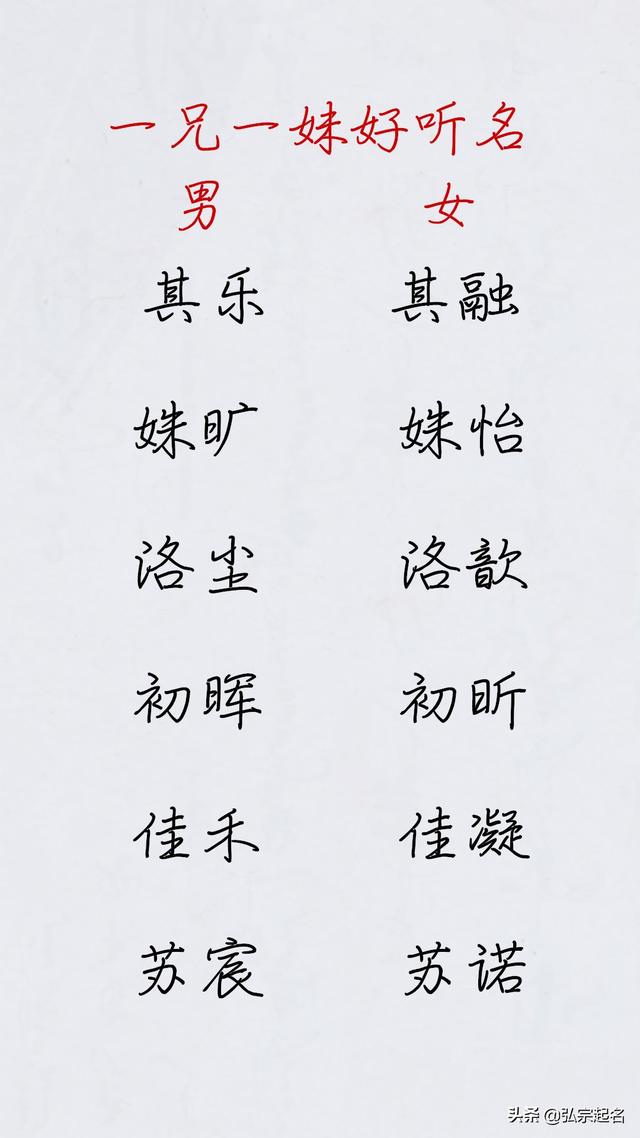 一兄一妹好听名
男 女
其乐 其融
姝旷 姝怡
洛尘 洛歆
初晖 初昕
佳禾 佳凝
苏宸 苏诺
头条 @弘宗起名